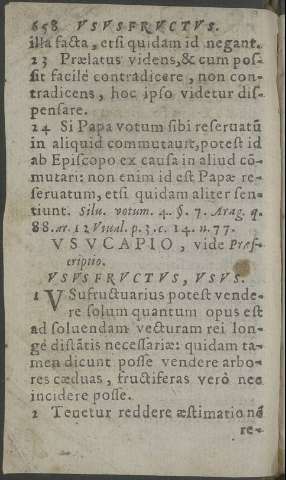 658 VSVSFRVCTVS.
illa facta, etsi quidam id negant.
23 Prælatus videns, & cum pos-
sit facilè contradicere, non con-
tradicens, hoc ipso videtur dis-
pensare.
24 Si Papa votum sibi reseruatũ
in aliquid commutauit, potest id
ab Episcopo ex causa in aliud cõ-
mutari: non enim id est Papæ re-
seruatum, etsi quidam aliter sen-
tiunt. Silu. votum. 4. §. 7. Arag. q.
88. ar. 12 Vsual. p. 3. c. 14. n. 77.
VSVCAPIO, vide Præs-
criptio.
VSVSFRVCTVS, VSVS.
1 VSufructuarius potest vende-
re solum quantum opus est
ad soluendam vecturam rei lon-
gè distãtis necessariæ: quidam ta-
men dicunt posse vendere arbo-
res cæduas, fructiferas verò nec
incidere posse.
2 Tenetur reddere æstimationẽ
re-